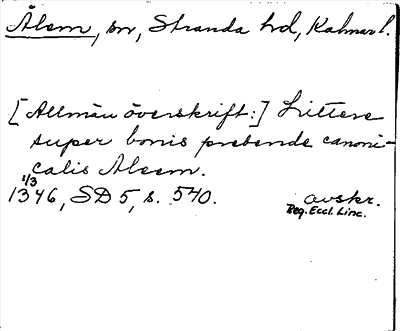 Ålem, sn, Stranda hd, Kalmar l.
[Allmän överskrift:] Littere
super bonis prebende canoni-
calis Aleem.
1/3
1346, SD 5, s. 570. avskr.
Reg. Eccl. Linc.